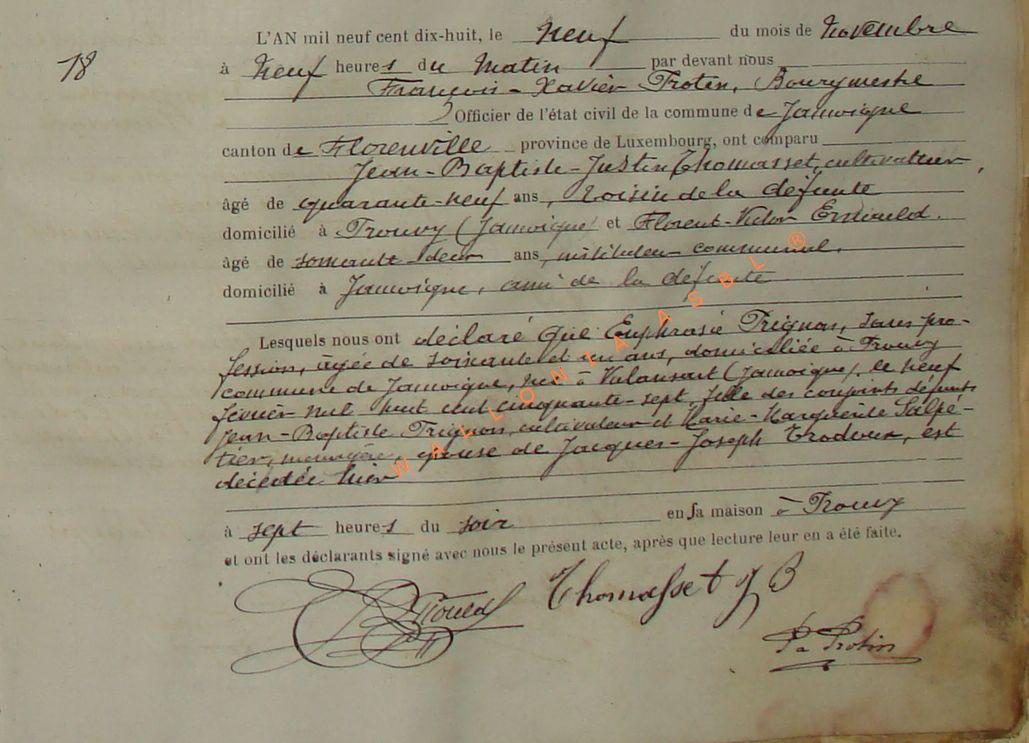 18
L'AN mil neuf cent dix-huit, le neuf du mois de Novembre
à neuf heures du matin par devant nous
François-Xavier Protin, Bourgmestre
Officier de l'état civil de la commune de Jamoigne
canton de Florenville province de Luxembourg, ont comparu
Jean-Baptiste-Justin Thomasset, cultivateur
âgé de quarante-neuf ans, voisin de la défunte
domicilié à Prouvy (Jamoigne) et Florent-Victor
âgé de soixante-deux ans, instituteur communal,
domicilié à Jamoigne, ami de la défunte
Lesquels nous ont déclaré que Euphrasie Pignon, sans pro-
fession, âgée de soixante et un ans, domiciliée à Prouvy
commune de Jamoigne, née à Valansart (Jamoigne), le neuf
février mil huit cent cinquante-sept, fille des conjoints défunts
Jean-Baptiste Pignon, cultivateur et Marie-Marguerite Salpé-
tier, ménagère, épouse de Jacques-Joseph, est
décédée hier
à sept heures du soir en sa maison à Prouvy
et ont les déclarants signé avec nous le présent acte, après que lecture leur en a été faite.
Thomasset J B
Protin
WALLONIA ASBL ®